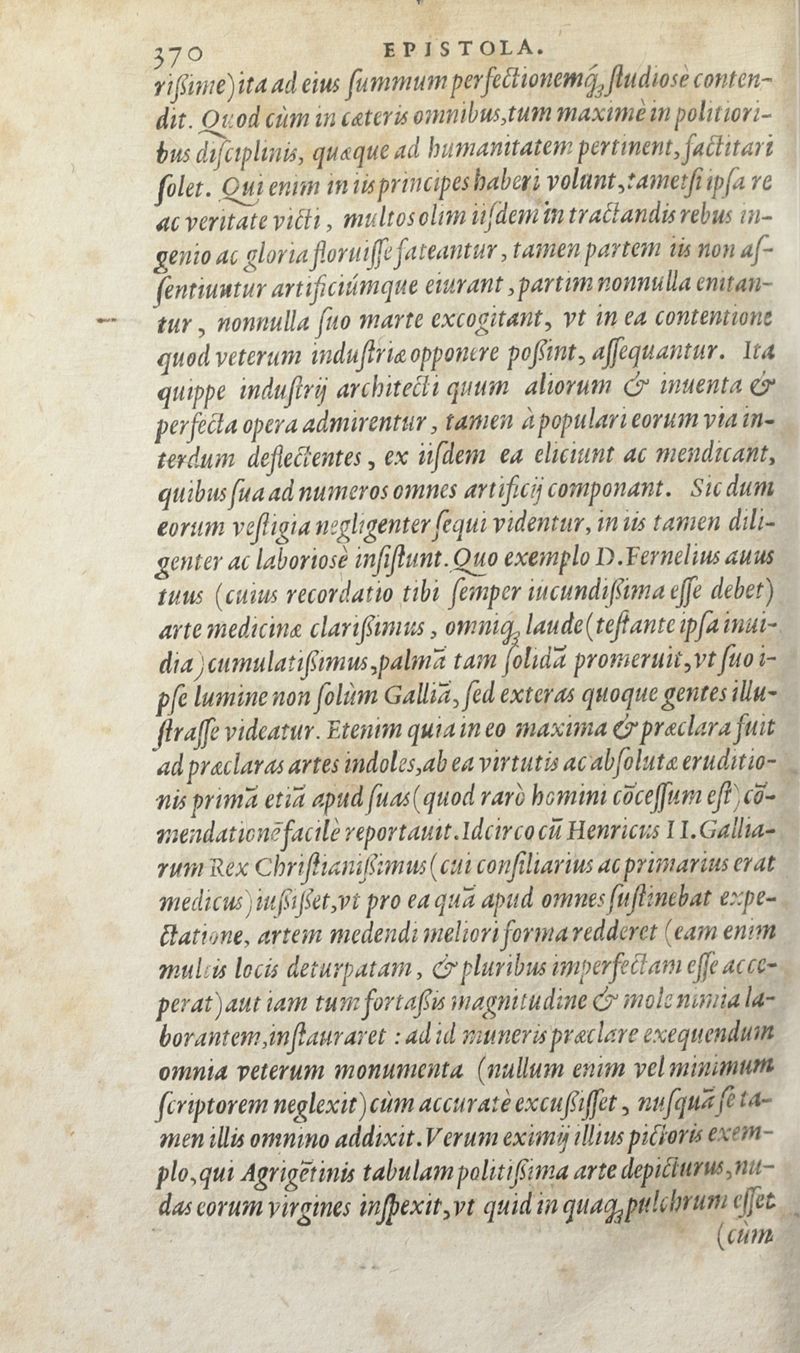 370 EPISTOLA.
rißime) ita ad eius ſummum perfectionemq́; ſtudiosè conten-
dit. Quod cùm in cæteris omnibus, tum maximè in politiori-
bus diſciplinis, quæque ad humanitatem pertinent, factitari
ſolet. Qui enim in iis principes haberi volunt, tametſi ipſa re
ac veritate victi, multos olim iiſdem in tractandis rebus in-
genio ac gloria floruiſſe fateantur, tamen partem iis non aſ-
ſentiuntur artificiúmque eiurant, partim nonnulla enitan-
tur, nonnulla ſuo marte excogitant, vt in ea contentione
quod veterum induſtriæ opponere poßint, aſſequantur. Ita
quippe induſtrij architecti quum aliorum & inuenta &
perfecta opera admirentur, tamen à populari eorum via in-
terdum deflectentes, ex iiſdem ea eliciunt ac mendicant,
quibus ſua ad numeros omnes artificij componant. Sic dum
eorum veſtigia negligenter ſequi videntur, in iis tamen dili-
genter ac laboriosè inſiſtunt. Quo exemplo D. Fernelius auus
tuus (cuius recordatio tibi ſemper iucundißima eſſe debet)
arte medicinæ clarißimus, omniq; laude (teſtante ipſa inui-
dia) cumulatißimus, palmã tam ſolidã promeruit, vt ſuo i-
pſe lumine non ſolùm Galliã, ſed exteras quoque gentes illu-
ſtraſſe videatur. Etenim quia in eo maxima & præclara fuit
ad præclaras artes indoles, ab ea virtutis ac abſolutæ eruditio-
nis primã etiã apud ſuas (quod rarò homini cõceſſum eſt) cõ-
mendationẽ facilè reportauit. Idcirco cũ Henricus II. Gallia-
rum Rex Chriſtianißimus (cui conſiliarius ac primarius erat
medicus) iußißet, vt pro ea quã apud omnes ſuſtinebat expe-
ctatione, artem medendi meliori forma redderet (eam enim
multis locis deturpatam, & pluribus imperfectam eſſe acce-
perat) aut iam tum fortaßis magnitudine & mole nimia la-
borantem, inſtauraret : ad id muneris præclare exequendum
omnia veterum monumenta (nullum enim vel minimum
ſcriptorem neglexit) cùm accuratè excußiſſet, nuſquã ſe ta-
men illis omnino addixit. Verum eximij illius pictoris exem-
plo, qui Agrigẽtinis tabulam politißima arte depicturus, nu-
das eorum virgines inſpexit, vt quid in quaq; pulchrum eſſet
(cùm